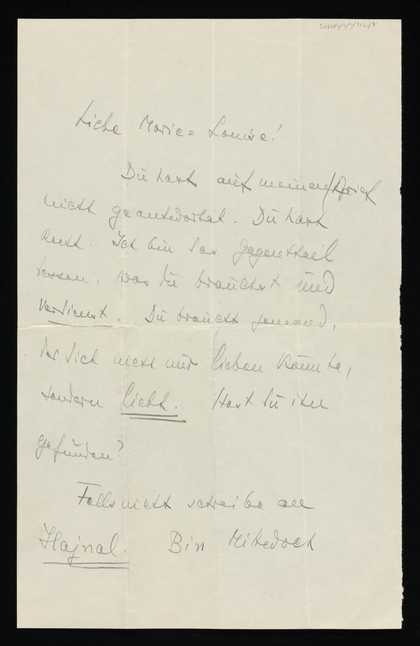 Liebe Marie-Louise!
Du hast auf meinen Brief
nicht geantwortet. Du hast
Recht. Ich bin das Gegenteil
dessen, was Du brauchst und
verdienst. Du brauchst jemand,
der Dich nicht nur lieben könnte,
sondern liebt. Hast Du ihn
gefunden?
Falls nicht schreibe an
Hajnal. Bin